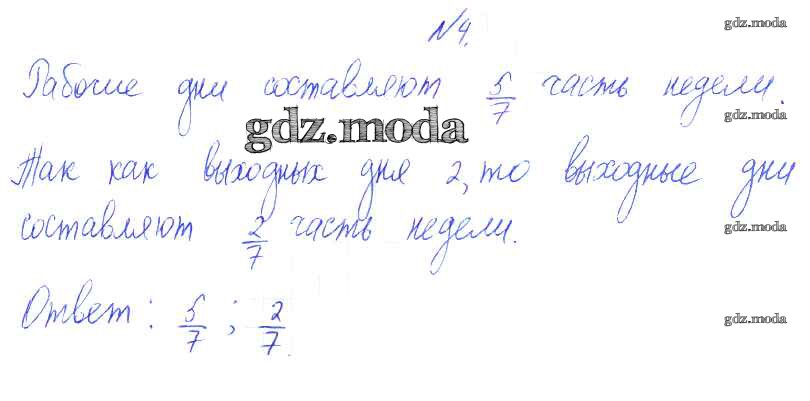 №4.
gdz.moda
Рабочие дни составляют 5/7 часть недели.
gdz.moda
gdz.moda
Так как выходных дня 2, то выходные дни
gdz.moda
составляют 2/7 часть недели.
gdz.moda
Ответ: 5/7; 2/7.
gdz.moda